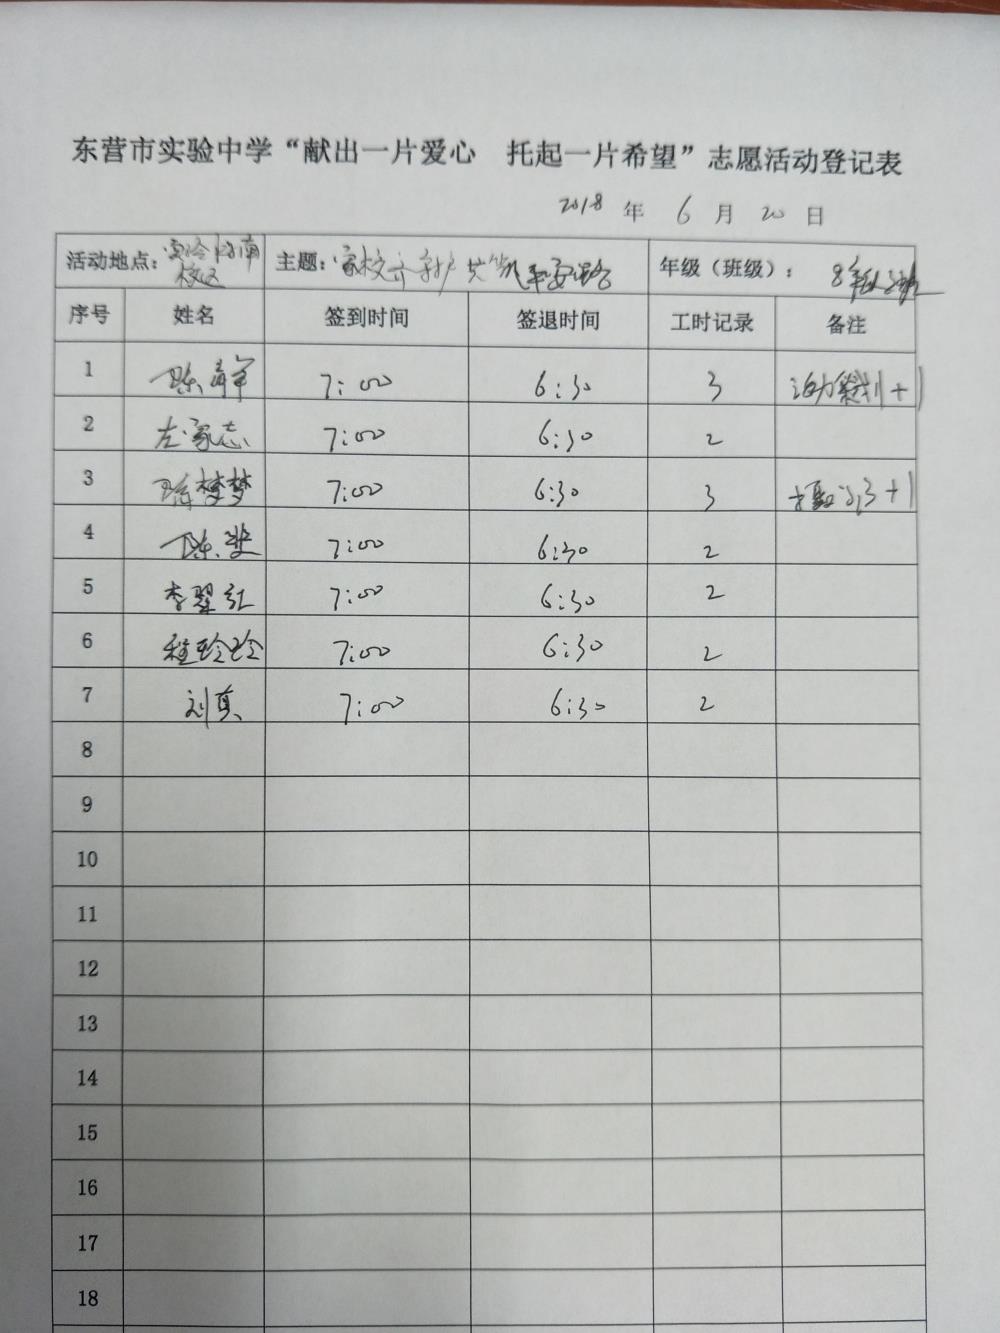 东营市实验中学“献出一片爱心 托起一片希望”志愿活动登记表
2018 年 6 月 20 日
活动地点： 校区 主题：家校 守护 共筑平安路 年级（班级）： 8年级
序号 姓名 签到时间 签退时间 工时记录 备注
1 陈 7:00 6:30 3 活动策划+1
2 左家志 7:00 6:30 2
3 陈梦梦 7:00 6:30 3 +1
4 陈斐 7:00 6:30 2
5 李翠红 7:00 6:30 2
6 程玲玲 7:00 6:30 2
7 刘真 7:00 6:30 2
8
9
10
11
12
13
14
15
16
17
18